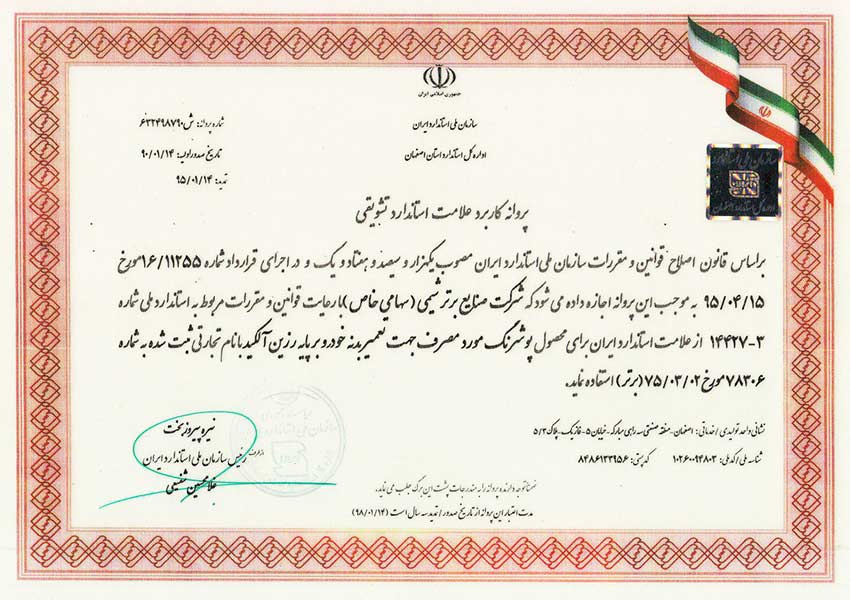 جمهوری اسلامی ایران
سازمان ملی استاندارد ایران
اداره کل استاندارد استان اصفهان
شماره پروانه: ش۶۳۲۴۹۸۷۹۰
تاریخ صدور اولیه: ۹۰/۰۱/۱۴
تمدید: ۹۵/۰۱/۱۴
پروانه کاربرد علامت استاندارد تشویقی
براساس قانون اصلاح قوانین و مقررات سازمان ملی استاندارد ایران مصوب یکهزار و سیصد و هفتاد و یک و در اجرای قرارداد شماره ۱۶/۱۱۲۵۵مورخ
۹۵/۰۴/۱۵ به موجب این پروانه اجازه داده می شود که شرکت صنایع برتر شیمی (سهامی خاص) با رعایت قوانین و مقررات مربوط به استاندارد ملی شماره
۱۴۴۲۷-۳ از علامت استاندارد ایران برای محصول پوشرنگ مورد مصرف جهت تعمیر بدنه خودرو بر پایه رزین آلکید با نام تجارتی ثبت شده به شماره
۷۸۳۰۶مورخ ۷۵/۰۳/۰۲(برتر) استفاده نماید.
نشانی واحد تولیدی / خدماتی: اصفهان-منطقه صنعتی سه راهی مبارکه-خیابان۵-فاز یک-پلاک ۵/۳
شناسه ملی/کد ملی: ۱۰۲۶۰۰۹۴۸۰۳ کد پستی: ۸۴۸۶۱۳۳۹۵۶
ضمنا توجه دارنده پروانه را به مندرجات پشت این برگ جلب می نماید.
مدت اعتبار این پروانه از تاریخ صدور / تمدید سه سال است (۹۸/۰۱/۱۴)
نیره پیروزبخت
رئیس سازمان ملی استاندارد ایران
از طرف
غلامحسین شفیعی